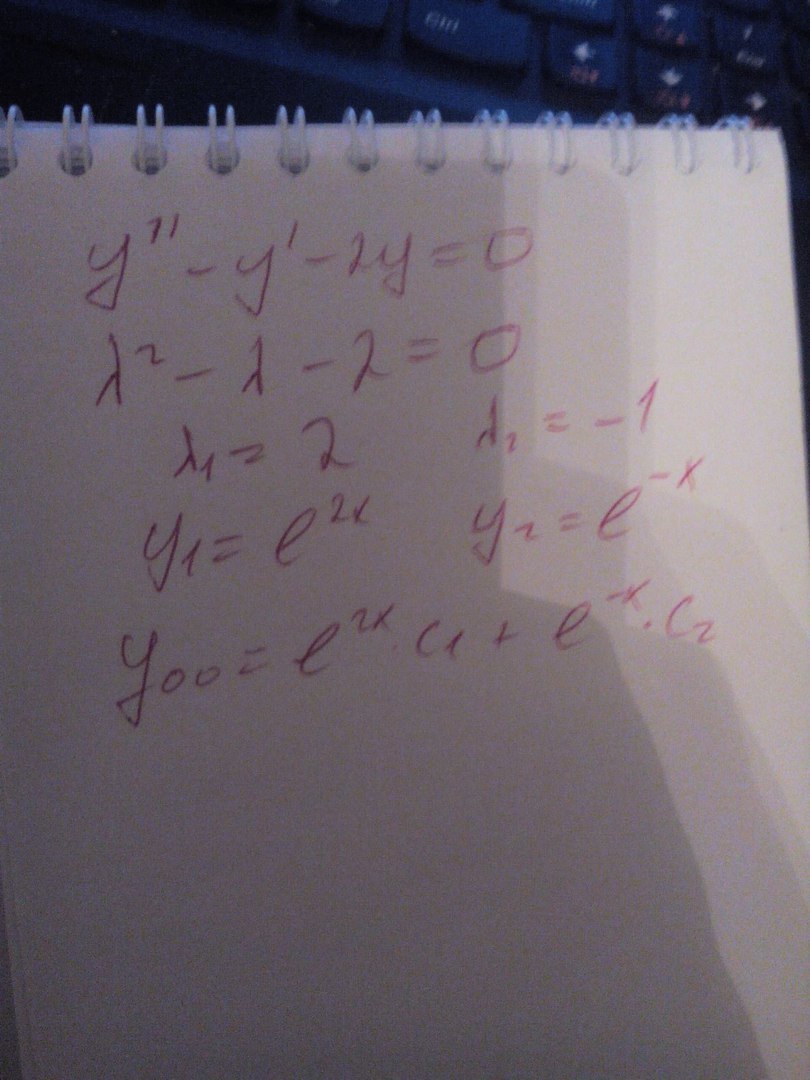 Ctrl
y'' - y' - 2y = 0
λ² - λ - 2 = 0
λ₁ = 2 λ₂ = -1
y₁ = e^{2x} y₂ = e^{-x}
y₀₀ = e^{2x} · c₁ + e^{-x} · c₂